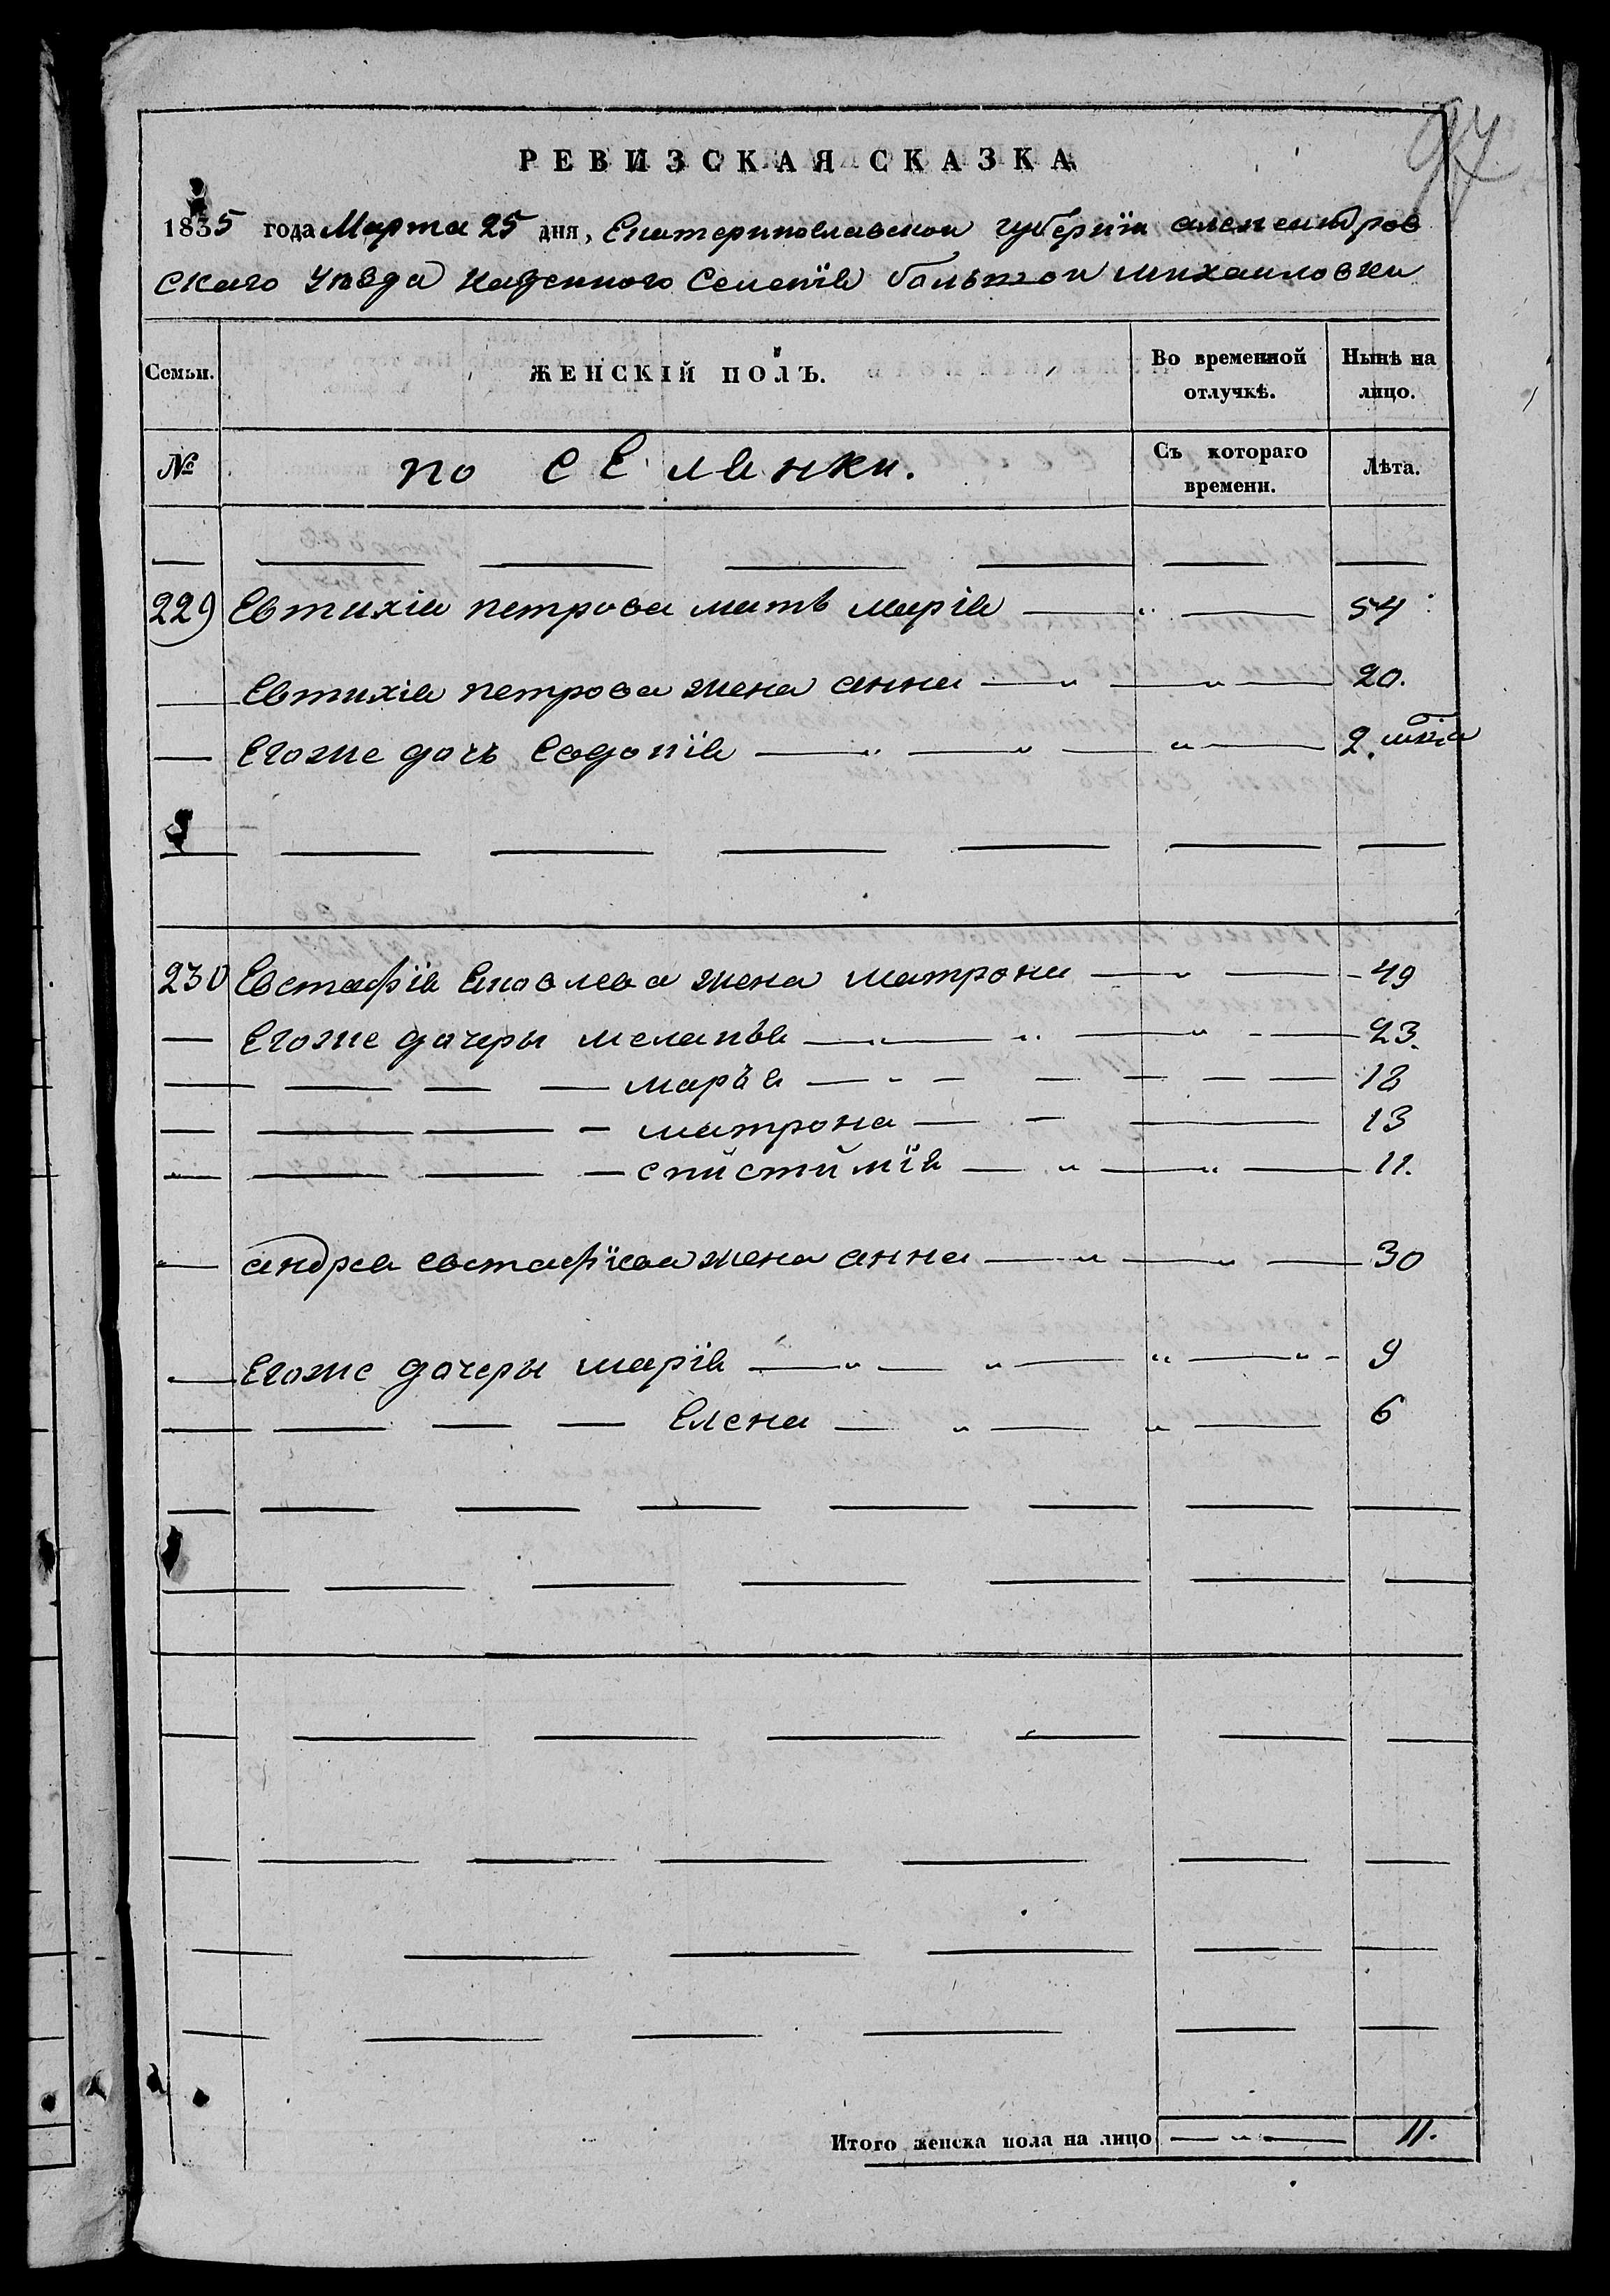 97
РЕВИЗСКАЯ СКАЗКА
1835 года Марта 25 дня, Екатеринославской губернїи александров
скаго уѣзда казенного Селенїя большой михайловки
Семьи. ЖЕНСКІЙ ПОЛЪ. Во временной отлучкѣ. Нынѣ на лицо.
№ поселянки. Съ котораго времени. Лѣта.
229 Евтихія петрова мать марія 54
Евтихія петрова жена анна 20.
Егоже дочь Евдопія 2.
230 Евстафїя Яковлева жена матрона 49
Егоже дочеры меланья 23.
марья 18
матрона 13
епистимїя 11.
андрея евстафїева жена анна 30
Егоже дочеры марїя 9
Елена 6
Итого женска пола на лицо 11.